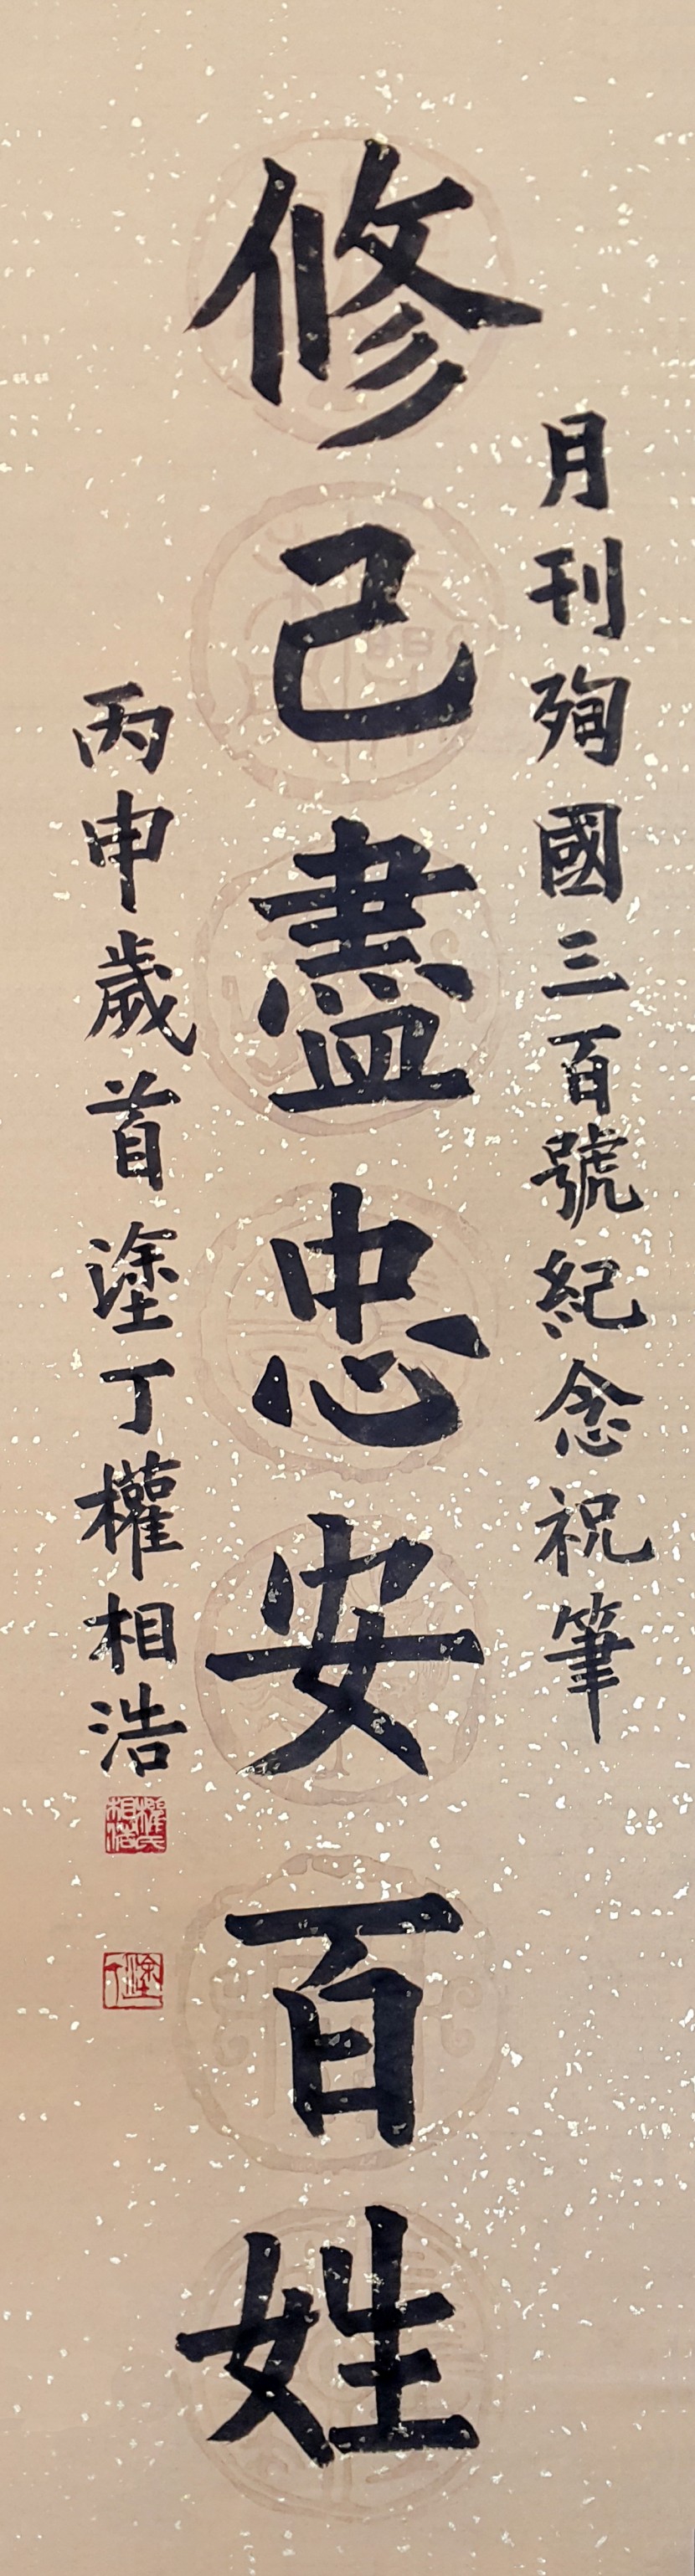 月刊殉國三百號紀念祝筆
修己盡忠安百姓
丙申歲首塗丁權相浩
權氏相浩
塗丁